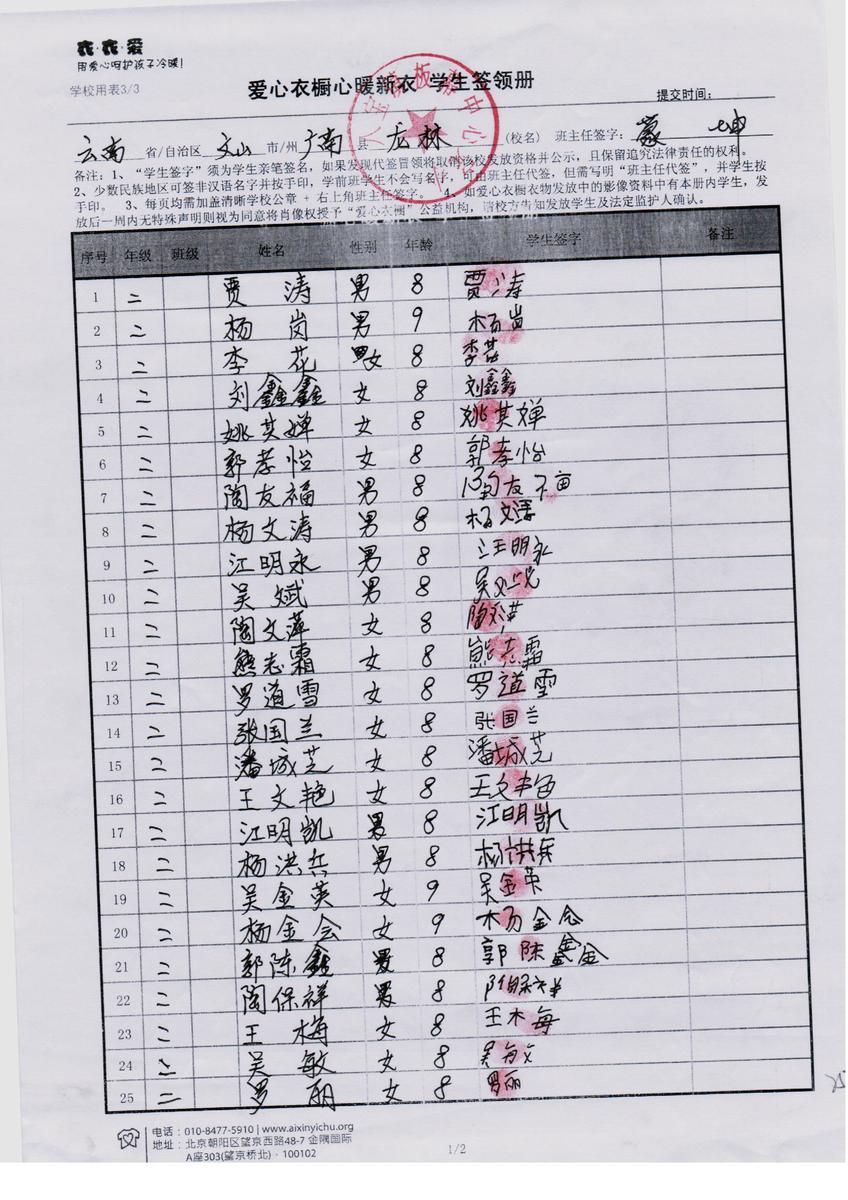 衣·衣·爱
用爱心呵护孩子冷暖!
学校用表3/3
爱心衣橱心暖新衣 学生签领册
提交时间:
云南 省/自治区 文山 市/州 广南 县 龙林 (校名) 班主任签字:
备注:1、“学生签字”须为学生亲笔签名,如果发现代签冒领将取消该校发放资格并公示,且保留追究法律责任的权利。
2、少数民族地区可签非汉语名字并按手印,学前班学生不会写名字,可由班主任代签,但需写明“班主任代签”,并学生按
手印。 3、每页均需加盖清晰学校公章 + 右上角班主任签字。 4、如爱心衣橱衣物发放中的影像资料中有本册内学生,发
放后一周内无特殊声明则视为同意将肖像权授予“爱心衣橱”公益机构,请校方告知发放学生及法定监护人确认。
序号 年级 班级 姓名 性别 年龄 学生签字 备注
1 二 贾涛 男 8 贾涛
2 二 杨岗 男 9 杨岗
3 二 李花 女 8 李花
4 二 刘鑫鑫 女 8 刘鑫鑫
5 二 姚其婵 女 8 姚其婵
6 二 郭孝怡 女 8 郭孝怡
7 二 陶友福 男 8 陶友福
8 二 杨文涛 男 8 杨文涛
9 二 江明永 男 8 江明永
10 二 吴斌 男 8 吴斌
11 二 陶文萍 女 8 陶文萍
12 二 熊志霜 女 8 熊志霜
13 二 罗道雪 女 8 罗道雪
14 二 张国兰 女 8 张国兰
15 二 潘城芝 女 8 潘城芝
16 二 王文艳 女 8 王文艳
17 二 江明凯 男 8 江明凯
18 二 杨洪兵 男 8 杨洪兵
19 二 吴金英 女 9 吴金英
20 二 杨金会 女 9 杨金会
21 二 郭陈鑫 男 8 郭陈鑫
22 二 陶保祥 男 8 陶保祥
23 二 王梅 女 8 王梅
24 二 吴敏 女 8 吴敏
25 二 罗丽 女 8 罗丽
电话:010-8477-5910 | www.aixinyichu.org
地址:北京朝阳区望京西路48-7 金隅国际
A座303(望京桥北)·100102
1/2